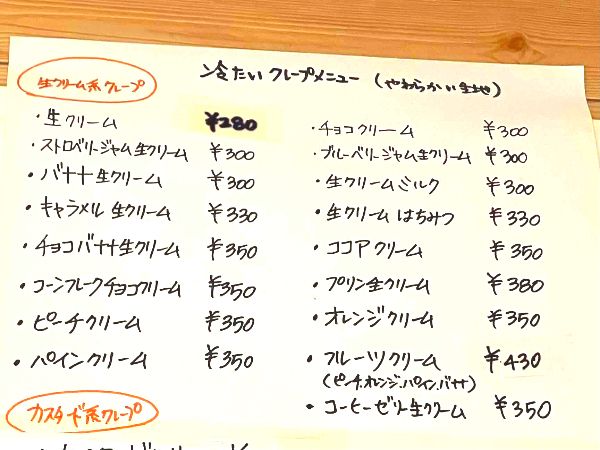 冷たいクレープメニュー (やわらかい生地)
生クリーム系クレープ
・生クリーム ¥280
・ストロベリージャム生クリーム ¥300
・バナナ生クリーム ¥300
・キャラメル生クリーム ¥330
・チョコバナナ生クリーム ¥350
・コーンフレークチョコクリーム ¥350
・ピーチクリーム ¥350
・パインクリーム ¥350
・チョコクリーム ¥300
・ブルーベリージャム生クリーム ¥300
・生クリームミルク ¥300
・生クリームはちみつ ¥330
・ココアクリーム ¥350
・プリン生クリーム ¥380
・オレンジクリーム ¥350
・フルーツクリーム ¥430
(ピーチ.オレンジ.パイン.バナナ)
・コーヒーゼリー生クリーム ¥350
カスタード系クレープ